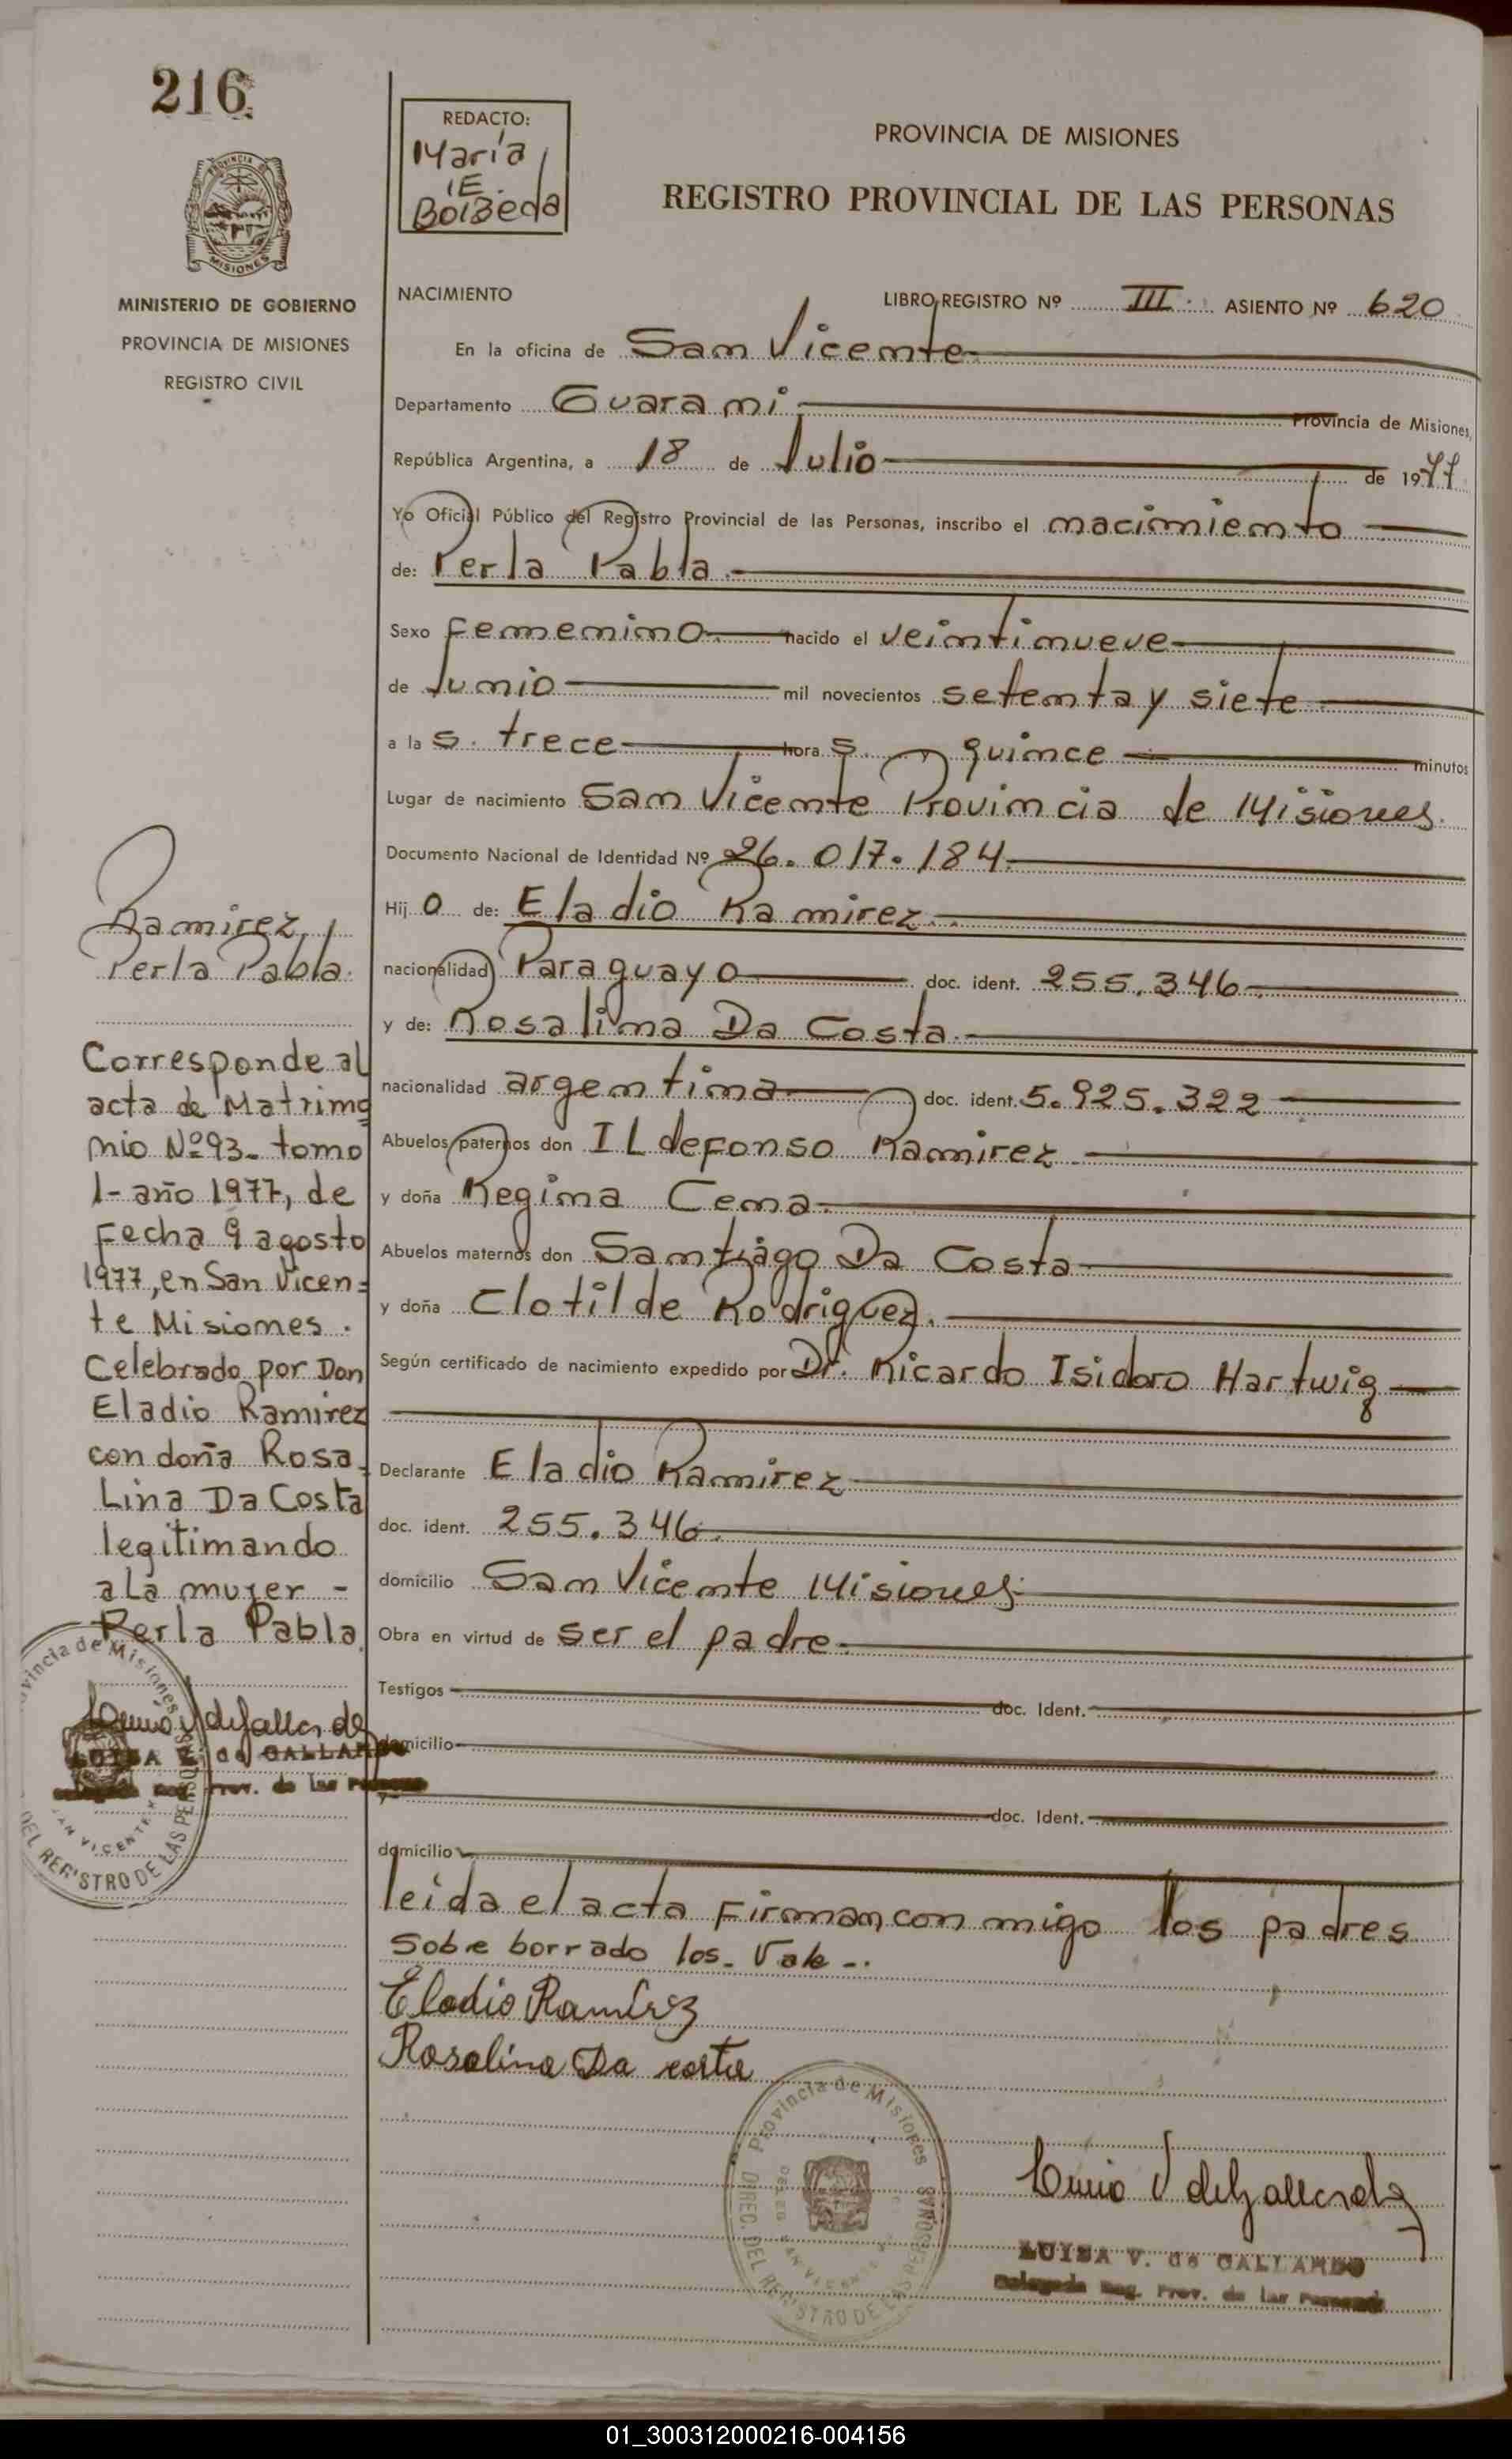 216
REDACTO:
María
E.
Bolzeda
PROVINCIA DE MISIONES
REGISTRO PROVINCIAL DE LAS PERSONAS
PROVINCIA
MISIONES
MINISTERIO DE GOBIERNO
PROVINCIA DE MISIONES
REGISTRO CIVIL
NACIMIENTO
LIBRO REGISTRO Nº III ASIENTO Nº 620
En la oficina de San Vicente
Departamento Guaraní Provincia de Misiones,
República Argentina, a 18 de Julio de 1977
Yo Oficial Público del Registro Provincial de las Personas, inscribo el nacimiento
de: Perla Pabla.
Sexo Femenino. nacido el veintinueve
de Junio mil novecientos setenta y siete
a la s. trece hora s. y quince minutos
Lugar de nacimiento San Vicente Provincia de Misiones.
Documento Nacional de Identidad Nº 26.017.184
Hij o de: Eladio Ramirez
nacionalidad Paraguayo doc. ident. 255.346
y de: Rosalina Da Costa.
nacionalidad argentina doc. ident. 5.925.322
Abuelos paternos don ILdefonso Ramirez
y doña Regina Cena
Abuelos maternos don Santiago Da Costa
y doña Clotilde Rodriguez.
Según certificado de nacimiento expedido por Dr. Ricardo Isidoro Hartwig
Declarante Eladio Ramirez
doc. ident. 255.346
domicilio San Vicente Misiones
Obra en virtud de ser el padre.
Testigos doc. Ident.
domicilio
y doc. Ident.
domicilio
leida el acta Firman con migo los padres
Sobre borrado los. Vale -.
Eladio Ramírez
Rosalina Da costa
Provincia de Misiones
DIREC. DEL REGISTRO DE LAS PERSONAS
SAN VICENTE
LUISA V. de GALLARDO
Delegada Reg. Prov. de las Personas
Ramirez
Perla Pabla.
Corresponde al
acta de Matrimo
nio Nº 93- tomo
1- año 1977, de
Fecha 9 agosto
1977, en San Vicen=
te Misiones.
Celebrado por Don
Eladio Ramirez
con doña Rosa
Lina Da Costa
legitimando
a La mujer -
Perla Pabla.
Provincia de Misiones
DEL REGISTRO DE LAS PERSONAS
SAN VICENTE
LUISA V. de GALLARDO
Delegada Reg. Prov. de las Personas
01_300312000216-004156